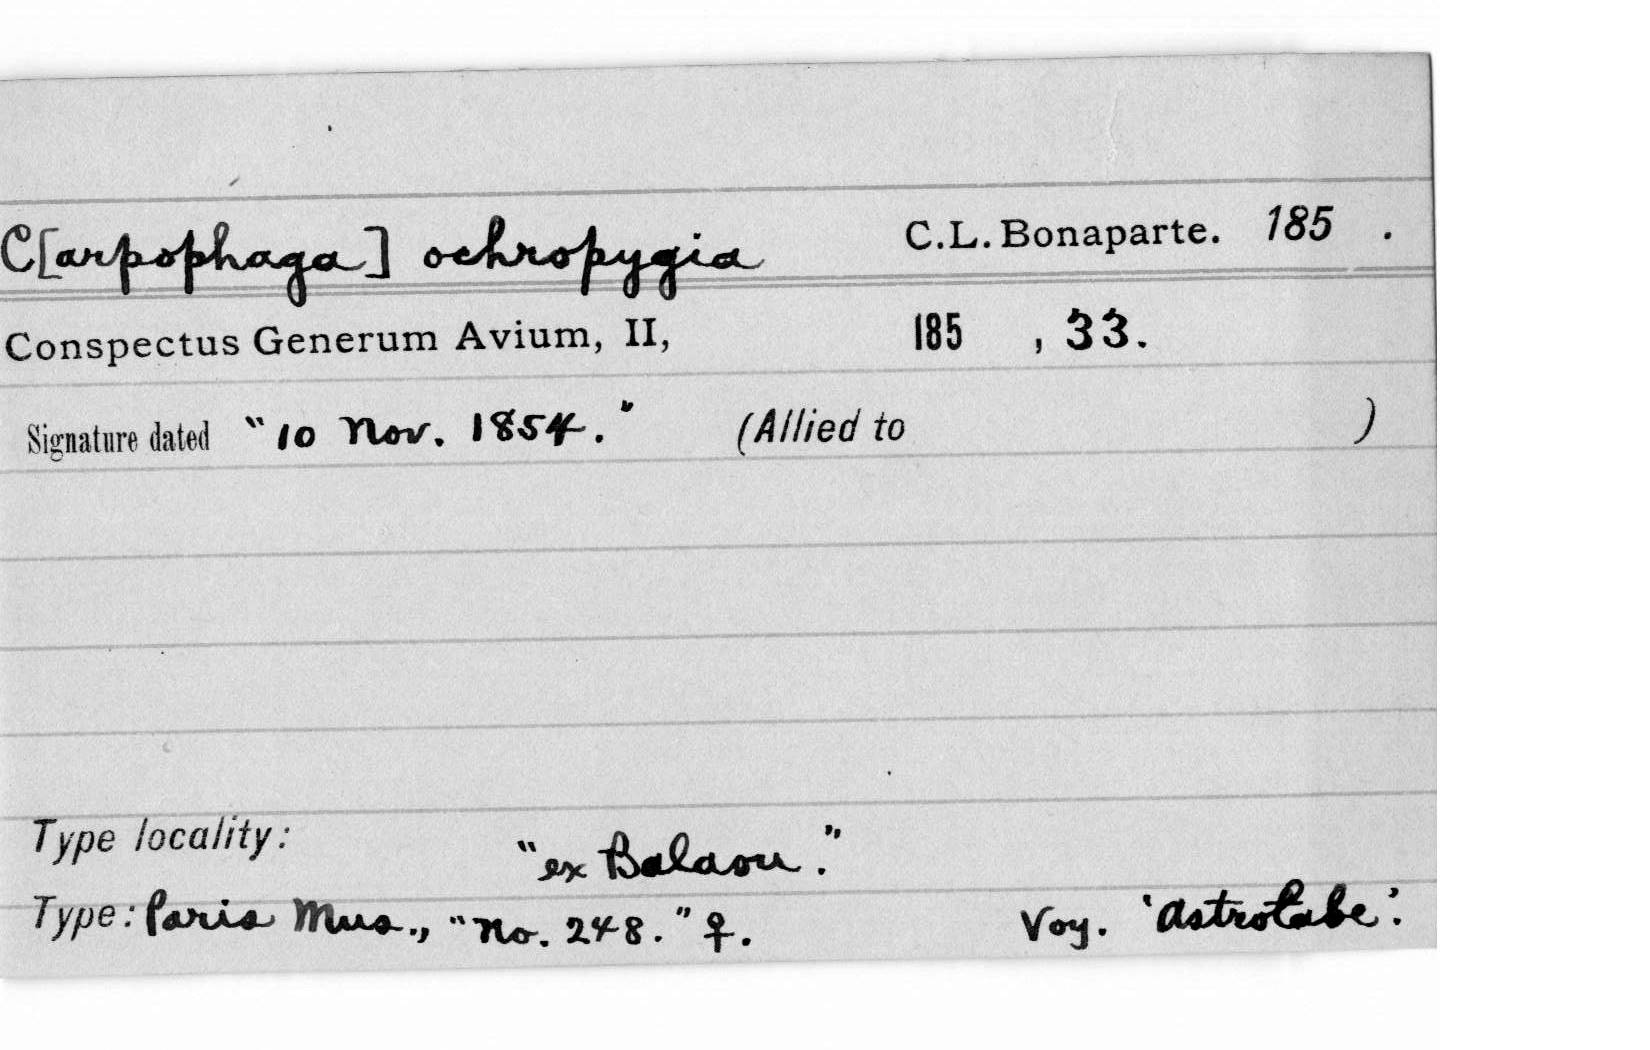 C[arpophaga] ochropygia C.L. Bonaparte. 185 .
Conspectus Generum Avium, II, 185 , 33.
Signature dated "10 Nov. 1854." (Allied to )
Type locality: "ex Balaou."
Type: Paris Mus., "No. 248." ♀. Voy. 'Astrolabe'.